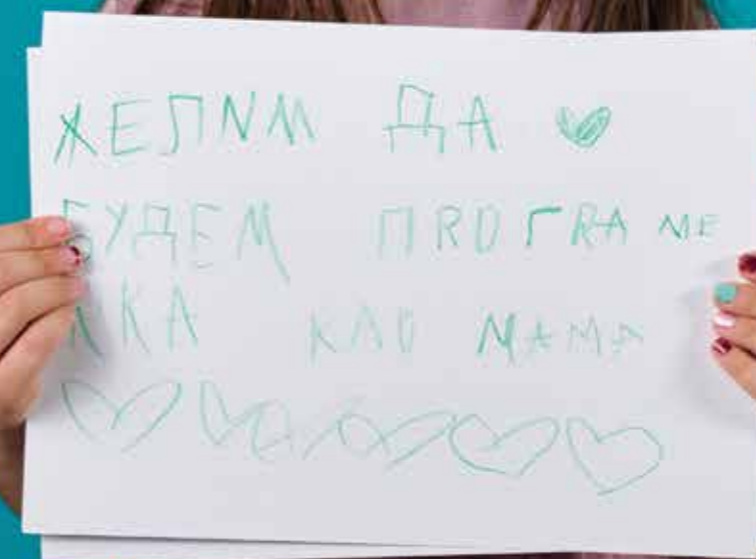 ЖЕЛNM ДА
БУДЕМ ПRОГRА МЕ
РКА КАО МАМА